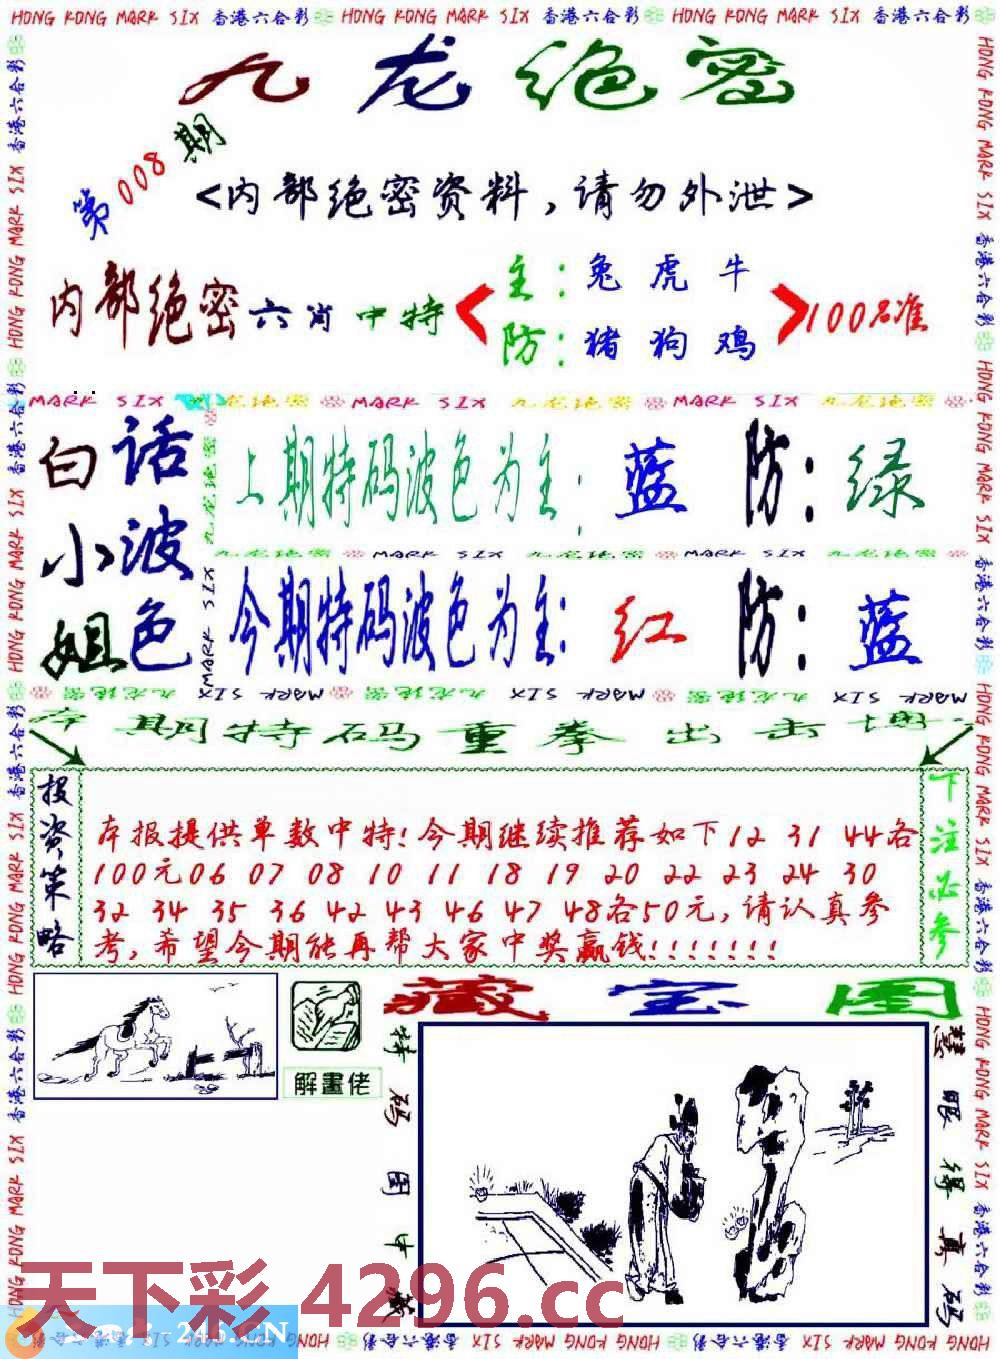 HONG KONG MARK SIX 香港六合彩 HONG KONG MARK SIX 香港六合彩 HONG KONG MARK SIX 香港六合彩
九龙绝密
第008期
<内部绝密资料，请勿外泄>
内部绝密六肖中特
主：兔 虎 牛
防：猪 狗 鸡
100%准
MARK SIX 九龙绝密 MARK SIX 九龙绝密 MARK SIX 九龙绝密
白小姐
话波色
上期特码波色为主：蓝 防：绿
九龙绝密 MARK SIX 九龙绝密 MARK SIX 九龙绝密
今期特码波色为主：红 防：蓝
本期特码重拳出击
投资策略
本报提供单数中特！今期继续推荐如下12 31 44各
100元06 07 08 10 11 18 19 20 22 23 24 30
32 34 35 36 42 43 46 47 48各50元，请认真参
考，希望今期能再帮大家中奖赢钱！！！！！！！
下注必参
解畫佬
藏宝图
特码图中藏
慧眼得真码
天下彩 4296.cc
246.CN